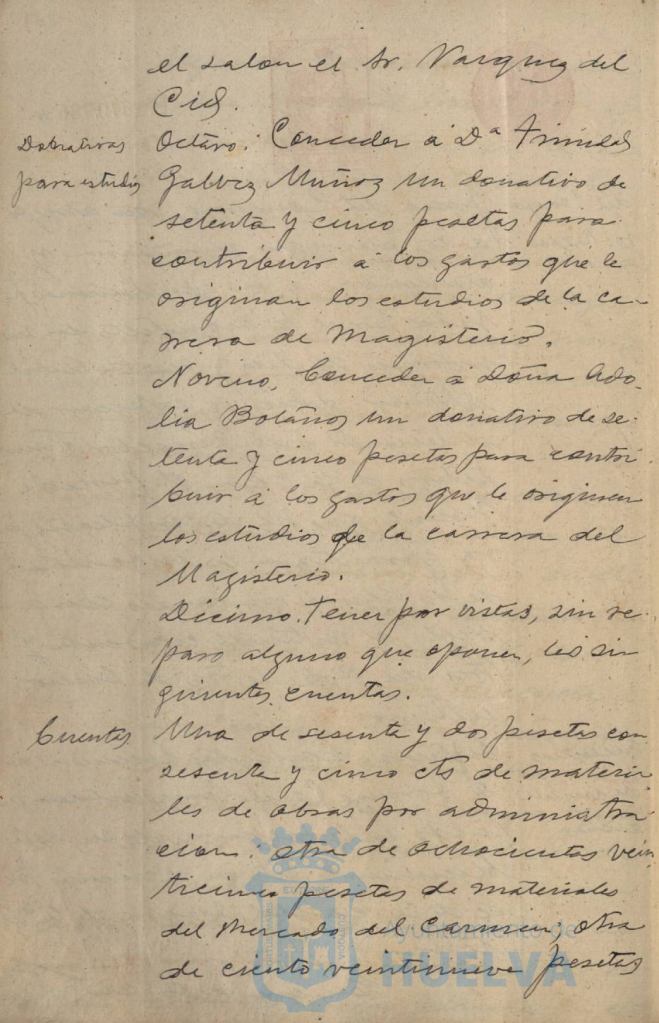 el salon el Sr. Vazquez del
Cid.
Donativos
para estudios
Octavo: Conceder á Dª Trinidad
Galvez Muñoz un donativo de
setenta y cinco pesetas para
contribuir á los gastos que le
originan los estudios de la ca-
rrera de Magisterio.
Noveno. Conceder á Doña Ado-
lia Bolaños un donativo de se-
tenta y cinco pesetas para contri-
buir á los gastos que le originan
los estudios de la carrera del
Magisterio.
Décimo. Tener por vistas, sin re-
paro alguno que oponer, las si-
guientes cuentas.
Cuentas
Una de sesenta y dos pesetas con
sesenta y cinco cts de materia-
les de obras por administra-
cion: otra de ochocientas vein-
ticinco pesetas de materiales
del Mercado del Carmen; otra
de ciento veintinueve pesetas
Ayuntamiento de
HUELVA